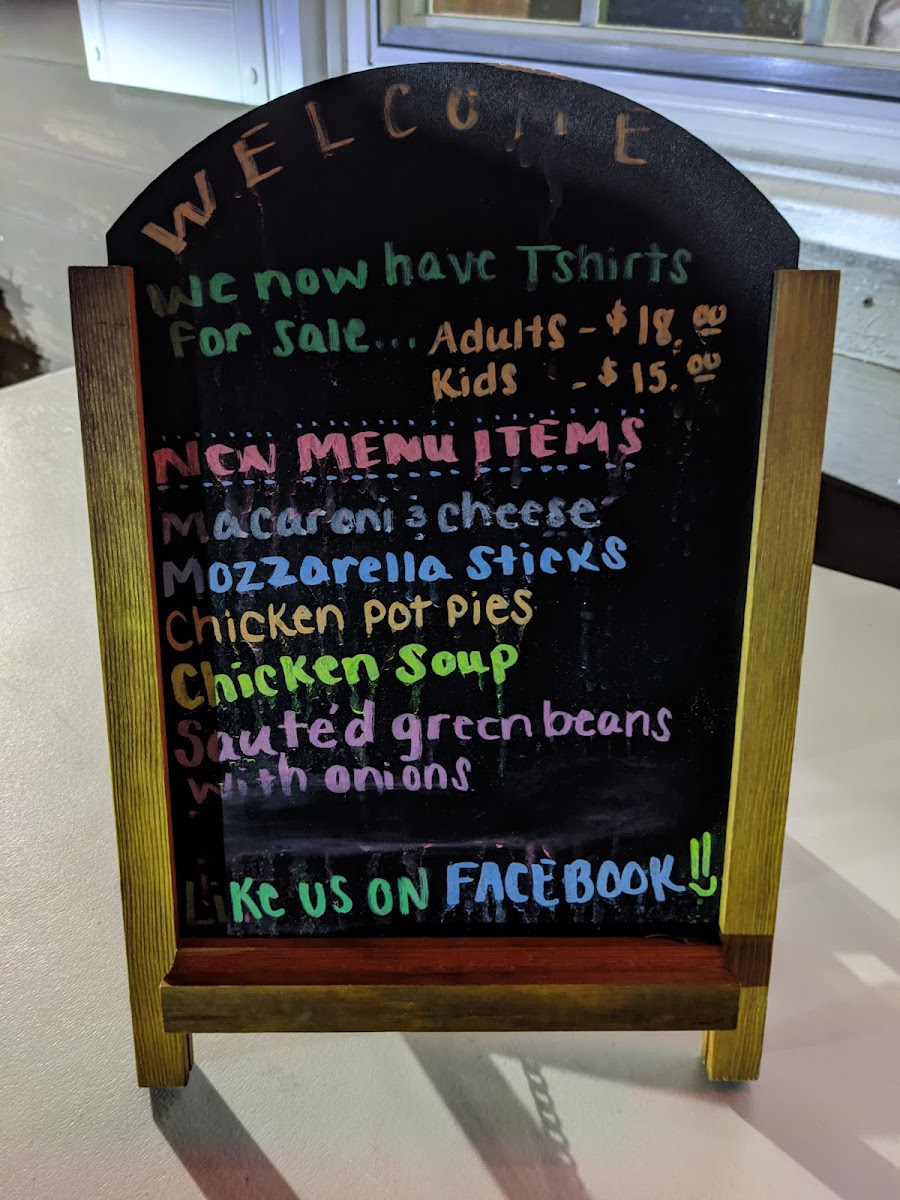 WELCOME
We now have Tshirts
for sale... Adults - $18.00
Kids - $15.00
New MENU ITEMS
Macaroni & cheese
Mozzarella Sticks
Chicken pot pies
Chicken Soup
Sauté'd green beans
with onions
Like us ON FACEBOOK!!